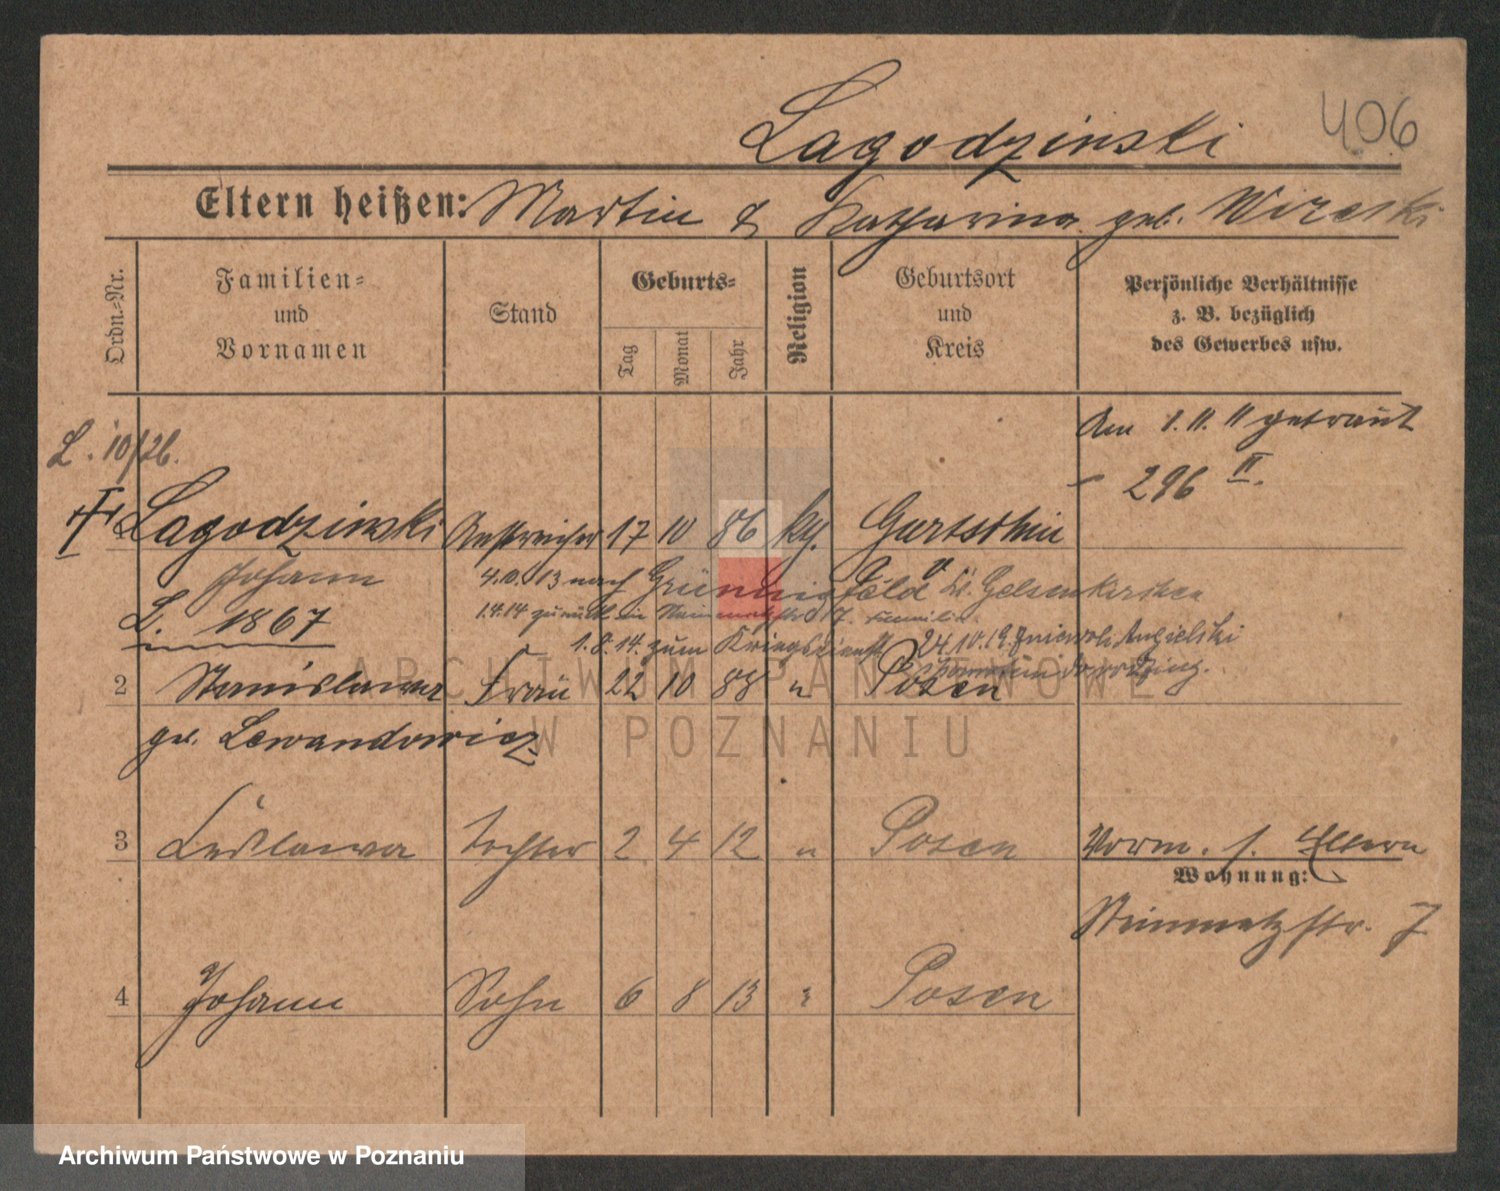 Lagodzinski
406
Eltern heißen: Martin & Katharina geb. Wircski
Ordn.=Nr.
Familien=
und
Vornamen
Stand
Geburts=
Tag
Monat
Jahr
Religion
Geburtsort
und
Kreis
Persönliche Verhältnisse
z. B. bezüglich
des Gewerbes usw.
Am 1. 11. 11 getraut
296 II.
L. 10/26.
Lagodzinski Anstreicher 17 10 86 kg. Gurtschin
Johann
4.10.13 nach Grünnigfeld Kr. Gelsenkirchen
L. 1867
1.4.14 zurück Steinmetzstr 7.
1.8.14 zum Kriegsdienst
24.10.19
2 Stanislawa Frau 22 10 88 " Posen
geb. Lewandowicz
3 Tochter 2 4 12 " Posen
Vorm. s. Eltern
Wohnung:
Steinmetzstr. 7
4 Johann Sohn 6 8 13 " Posen
ARCHIWUM PAŃSTWOWE
W POZNANIU
Archiwum Państwowe w Poznaniu